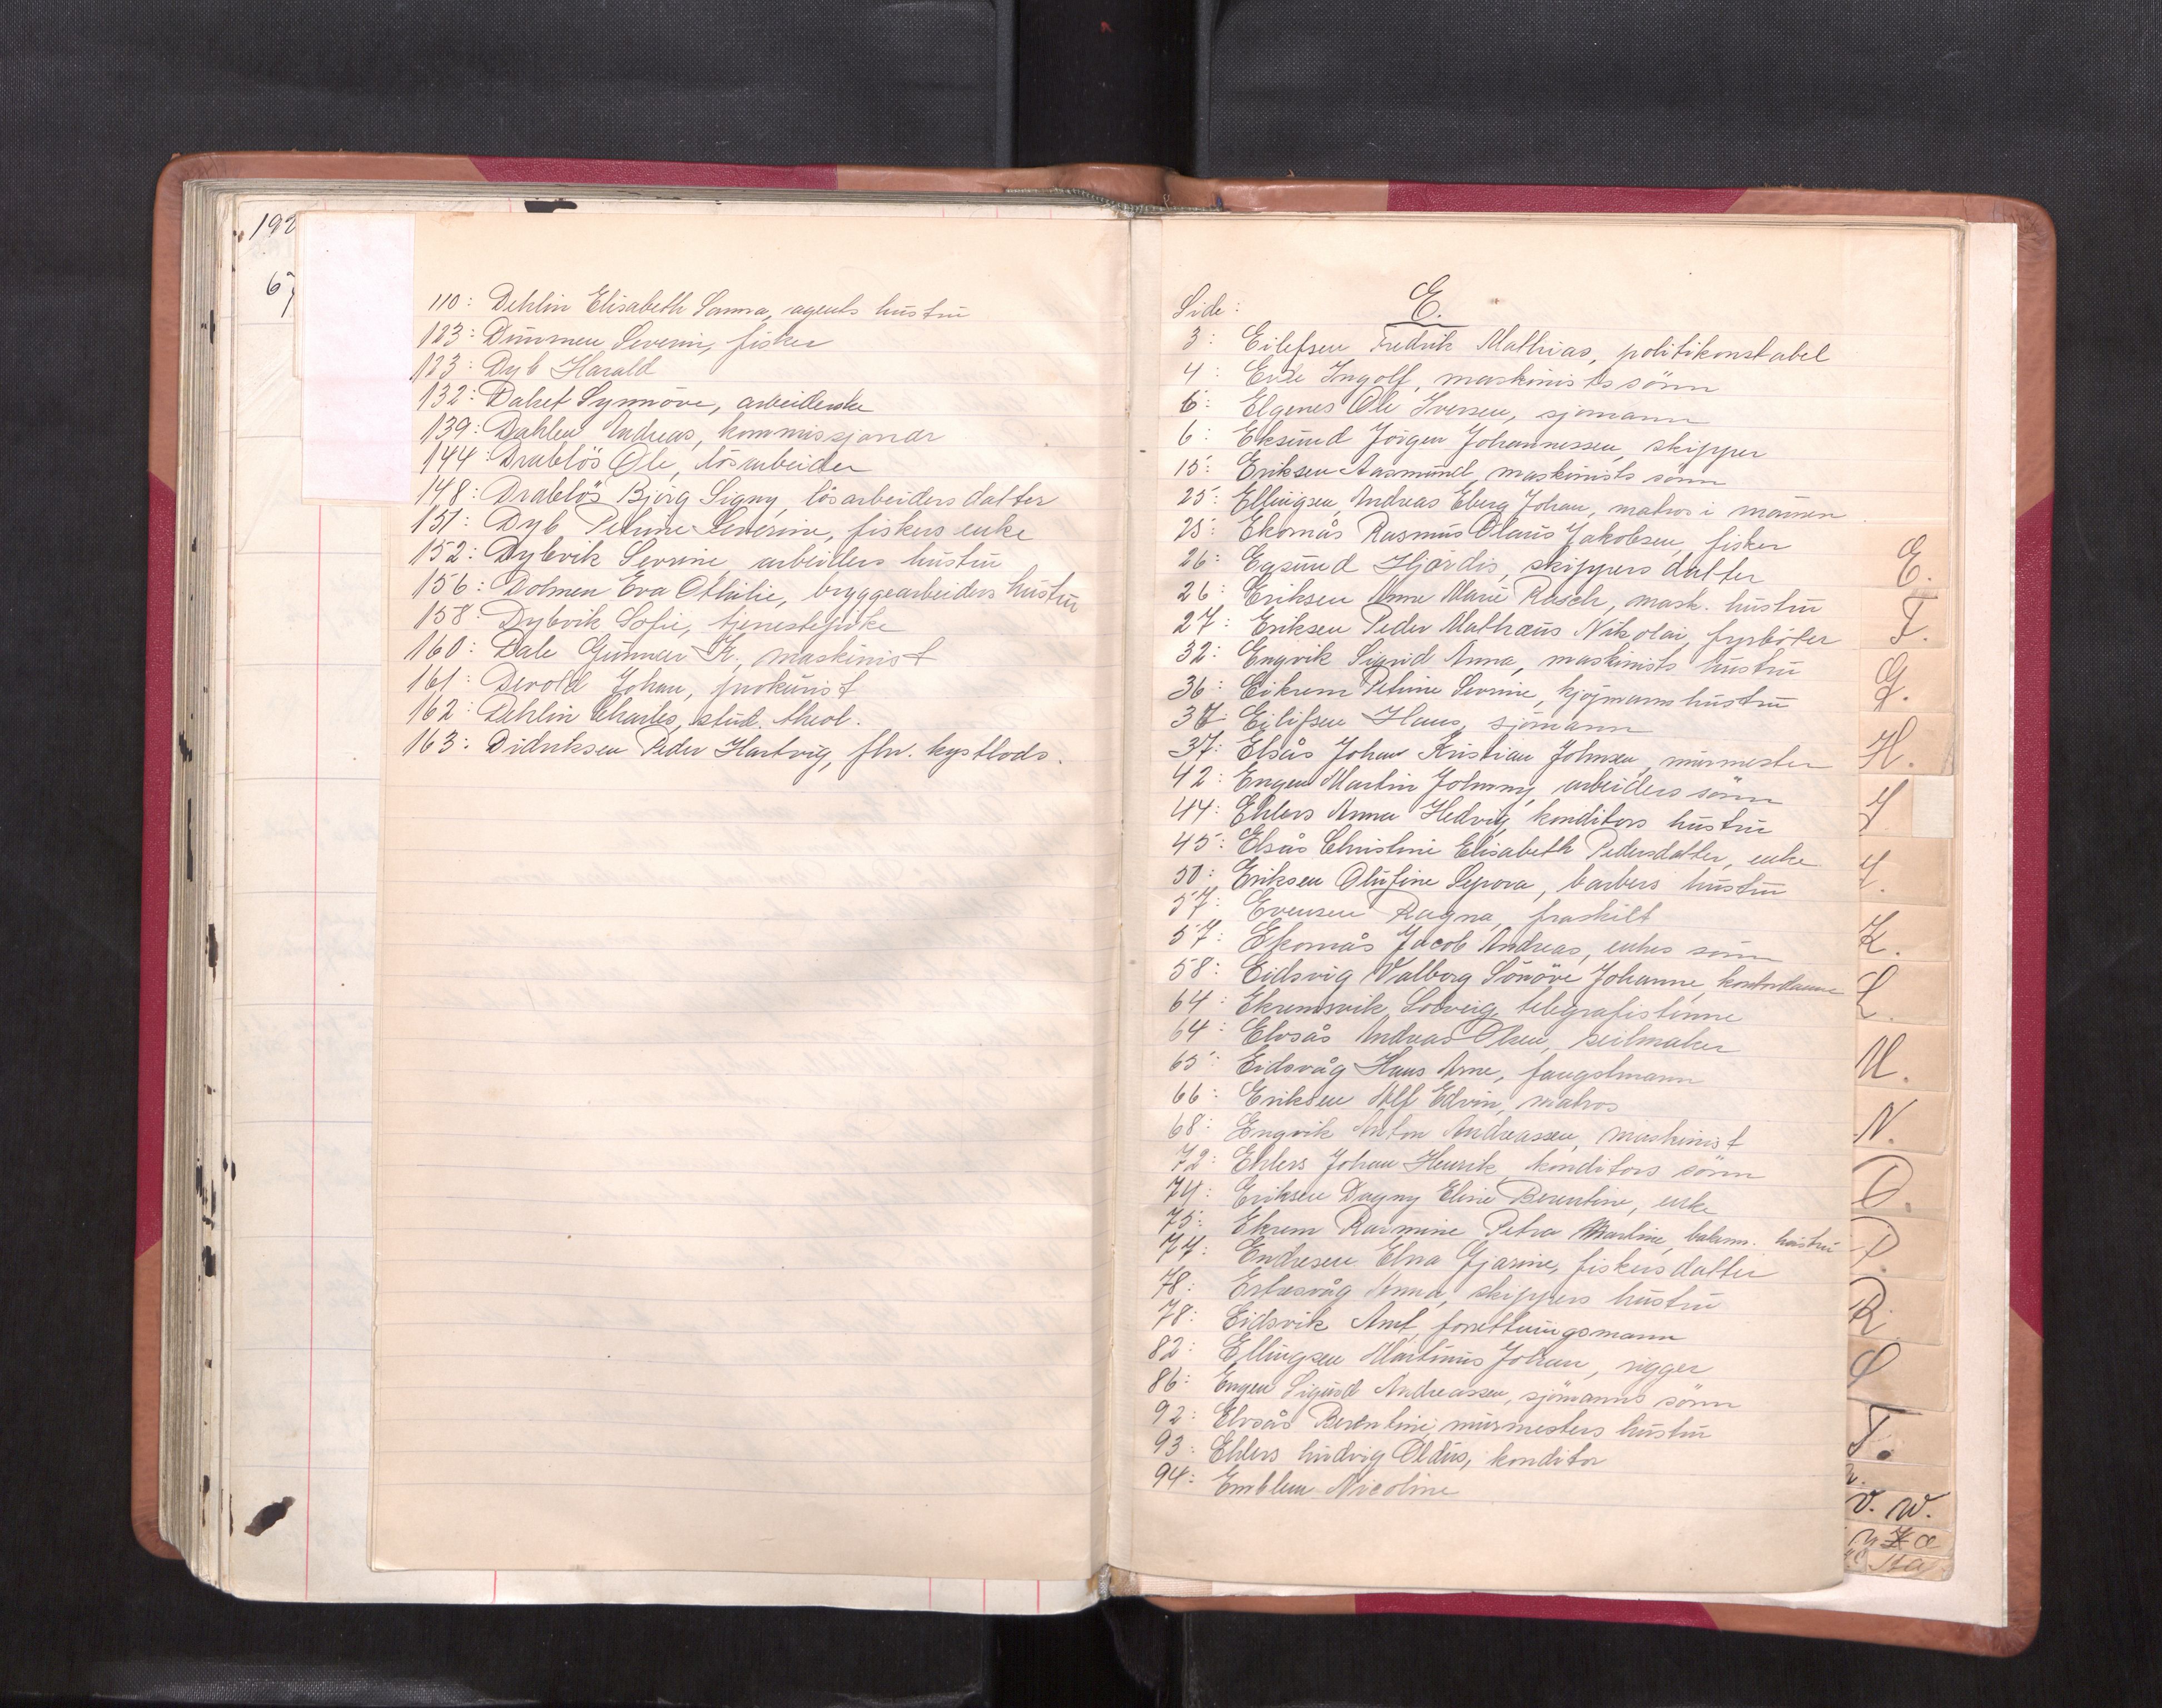 192
67
110: Dehlin Elisabeth Sanna, agents hustru
123: Dimmen Severin, fisker
123: Dyb Harald
132: Dalset Synnöve, arbeiderske
139: Dahlen Andreas, kommissjonær
144: Drablös Ole, lösarbeider
148: Drablös Bjørg Signy, lösarbeiders datter
151: Dyb Petrine Severine, fiskers enke
152: Dybvik Severine, arbeiders hustru
156: Dolmen Eva Othilie, bryggearbeiders hustru
158: Dybvik Sofie, tjenestepike
160: Dale Gunnar K., maskinist
161: Devold Johan, prokurist
162: Dehlin Charles, stud. theol.
163: Didriksen Peder Hartvig, fhv. kystlods.
E.
Side:
3: Eilefsen Fredrik Mathias, politikonstabel
4: Ingolf, maskinists sönn
6: Elgenes Ole Iversen, sjömann
6: Eksund Jörgen Johannessen, skipper
15: Eriksen Aasmund, maskinists sönn
25: Ellingsen, Andreas Eberg Johan, matros i marinen
25: Ekornås Rasmus Olaus Jakobsen, fisker
26: Egsund Hjördis, skippers datter
26: Eriksen Anna Marie Rasch, mask. hustru
27: Eriksen Peder Mathæus Nikolai, fyrböter
32: Engvik Sigrid Anna, maskinists hustru
36: Eikrem Petrine Severine, kjöpmanns hustru
37: Eilifsen Hans, sjömann
37: Elsås Johan Kristian Johnsen, murmester
42: Engen Martin Johnny, arbeiders sönn
44: Ehlers Anna Hedvig, konditors hustru
45: Elsås Christine Elisabeth Pedersdatter, enke
50: Eriksen Olufine Seprora, barbers hustru
57: Evensen Ragna, fraskilt
57: Ekornås Jacob Andreas, enkes sönn
58: Eidsvig Valborg Sönöve Johanne, kontordame
64: Ekremsvik Solveig, telegrafistinne
64: Elvsås Andreas Olsen, seilmaker
65: Eidsvåg Hans Arne, fangstmann
66: Eriksen Alf Edvin, matros
68: Engvik Anton Andreassen, maskinist
72: Ehlers Johan Henrik, konditors sönn
74: Eriksen Dagny Eline Berentine, enke
75: Ekrem Rasmine Petra Martine, hustru
77: Endresen Elna Gjarine, fiskers datter
78: Anna, skippers hustru
78: Eidsvik Arnt, forretningsmann
82: Ellingsen Martinus Johan, rigger
86: Engen Sigurd Andreassen, sjömanns sönn
92: Elvsås Berentine, murmesters hustru
93: Ehlers Ludvig Oldus, konditor
94: Emblem Nicoline
E.
F.
G.
H.
I
J.
K.
L.
M.
N.
O.
P.
R.
S
T.
V. W.